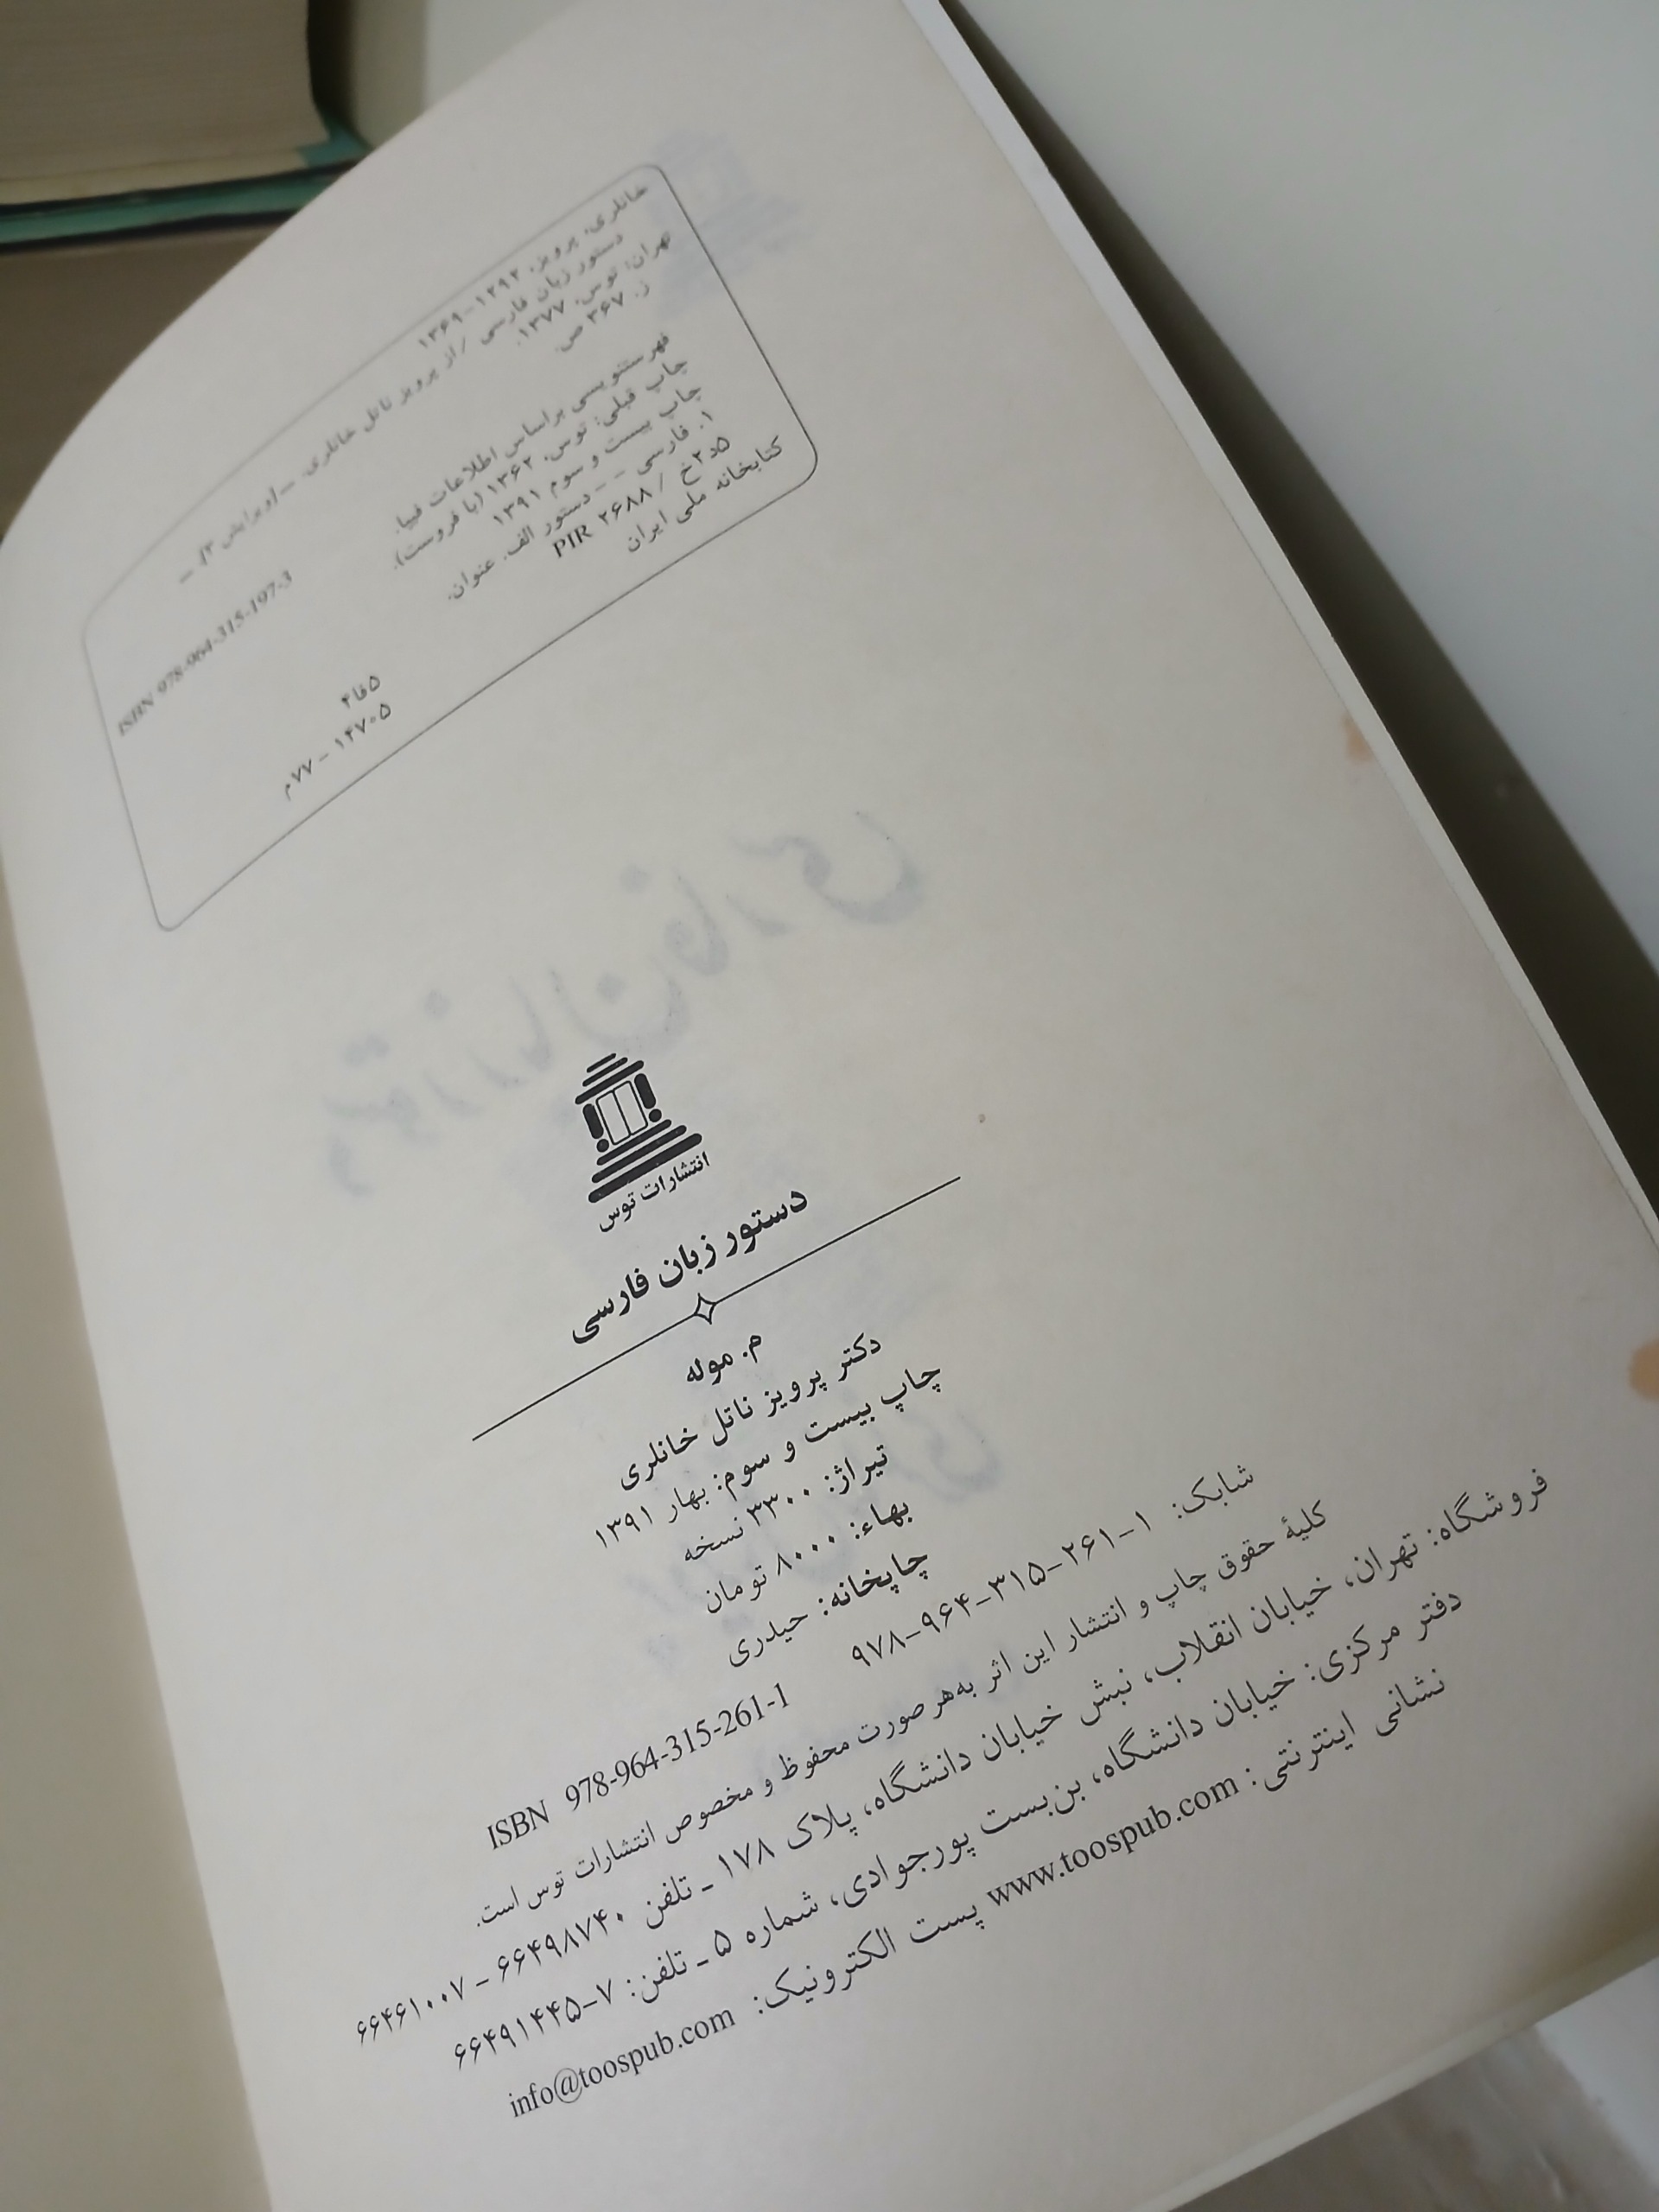 خانلری، پرویز، ۱۲۹۲-۱۳۶۹
دستور زبان فارسی / از پرویز ناتل خانلری. ــ [ویرایش ۳]. ــ
تهران: توس، ۱۳۷۷.
ز، ۳۶۷ ص.
ISBN 978-964-315-197-3
فهرستنویسی براساس اطلاعات فیپا.
چاپ قبلی: توس، ۱۳۶۳ (با فروست).
چاپ بیست و سوم ۱۳۹۱
۱. فارسی - - دستور الف. عنوان.
۵د۲خ / PIR ۲۶۸۸
۵فا۴
کتابخانه ملی ایران
۱۴۷۰۵ - ۷۷م
انتشارات توس
دستور زبان فارسی
م. موله
دکتر پرویز ناتل خانلری
چاپ بیست و سوم: بهار ۱۳۹۱
تیراژ: ۳۳۰۰ نسخه
بهاء: ۸۰۰۰ تومان
چاپخانه: حیدری
شابک: ۱-۲۶۱-۳۱۵-۹۶۴-۹۷۸ ISBN 978-964-315-261-1
کلیهٔ حقوق چاپ و انتشار این اثر به‌هر صورت محفوظ و مخصوص انتشارات توس است.
فروشگاه: تهران، خیابان انقلاب، نبش خیابان دانشگاه، پلاک ۱۷۸ ـ تلفن ۶۶۴۹۸۷۴۰ ـ ۶۶۴۶۱۰۰۷
دفتر مرکزی: خیابان دانشگاه، بن‌بست پورجوادی، شماره ۵ ـ تلفن: ۷-۶۶۴۹۱۴۴۵
نشانی اینترنتی: www.toospub.com پست الکترونیک: info@toospub.com